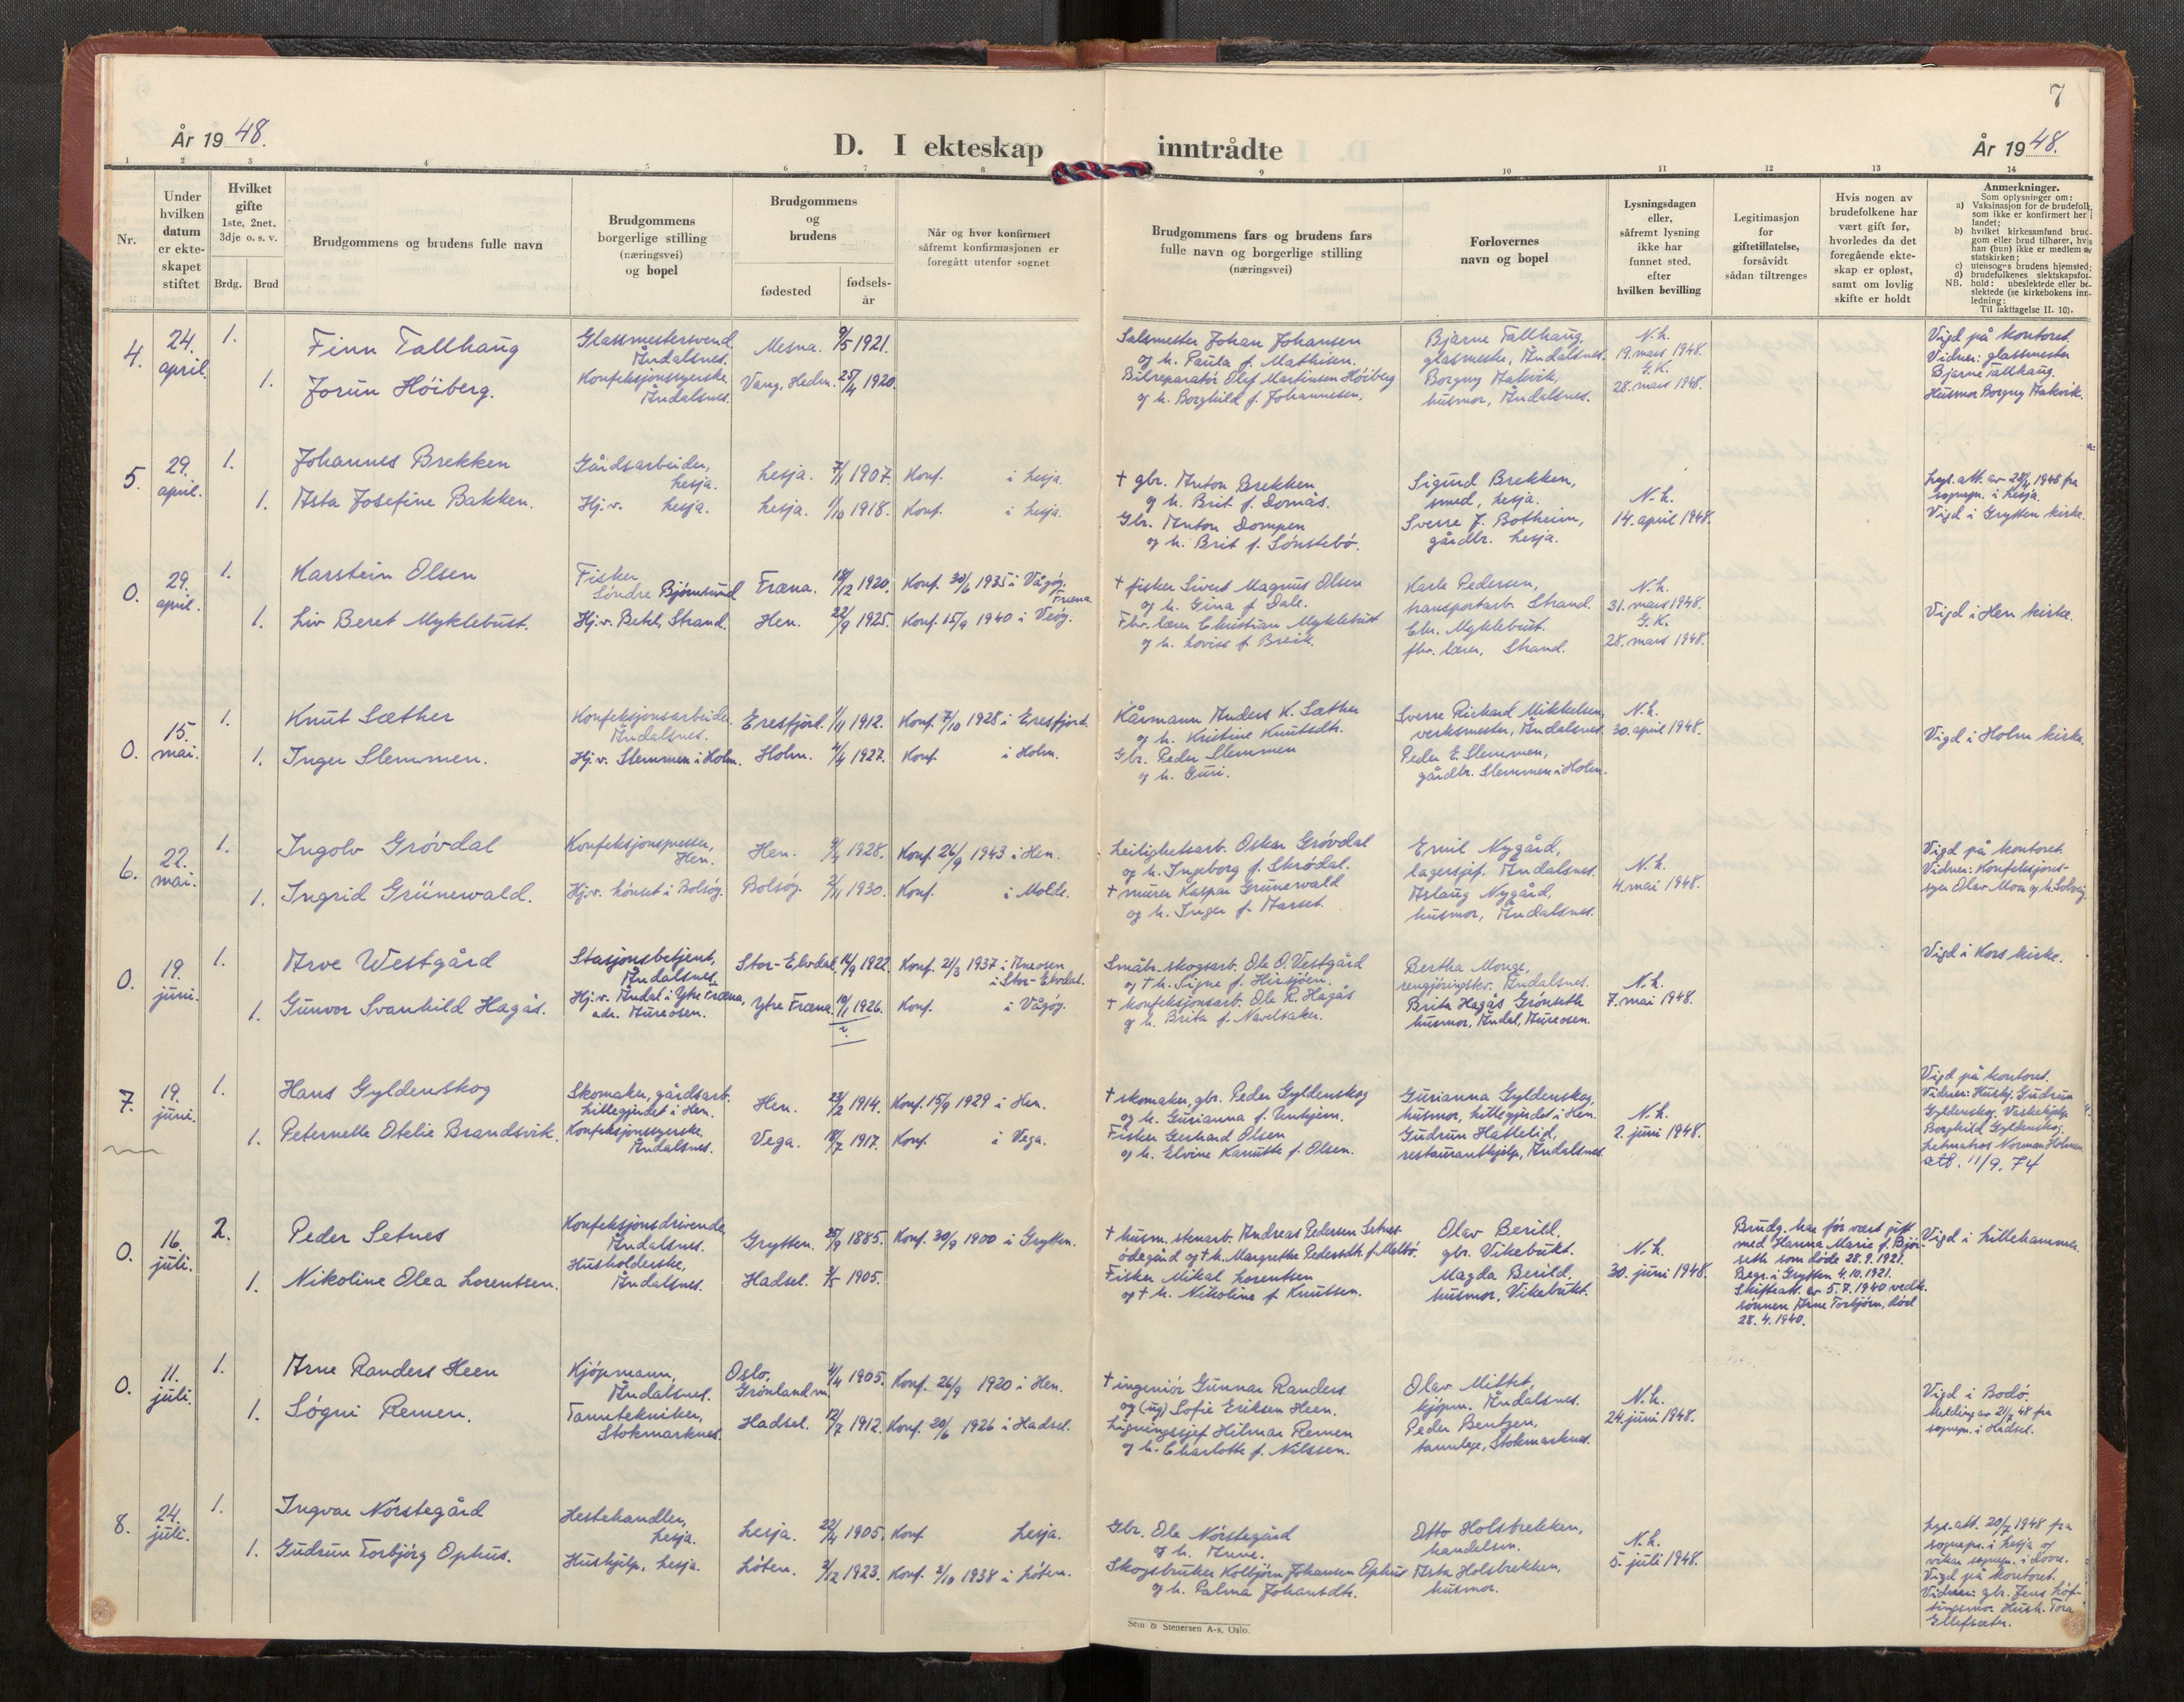 7
År 1948.
D. I ekteskap inntrådte
År 1948.
1 2 3 4 5 6 7 8 9 10 11 12 13 14
Nr.
Under hvilken datum er ekteskapet stiftet
Hvilket gifte
1ste, 2net, 3dje o. s. v.
Brdg. Brud
Brudgommens og brudens fulle navn
Brudgommens borgerlige stilling (næringsvei) og bopel
Brudgommens og brudens
fødested
fødselsår
Når og hvor konfirmert såfremt konfirmasjonen er foregått utenfor sognet
Brudgommens fars og brudens fars fulle navn og borgerlige stilling (næringsvei)
Forlovernes navn og bopel
Lysningsdagen eller, såfremt lysning ikke har funnet sted, efter hvilken bevilling
Legitimasjon for giftetillatelse, forsåvidt sådan tiltrenges
Hvis nogen av brudefolkene har vært gift før, hvorledes da det foregående ekteskap er opløst, samt om lovlig skifte er holdt
Anmerkninger.
Som oplysninger om:
a) Vaksinasjon for de brudefolk, som ikke er konfirmert her i landet;
b) hvilket kirkesamfund brudgom eller brud tilhører, hvis han (hun) ikke er medlem av statskirken;
c) utensogns brudens hjemsted;
d) brudefolkenes slektskapsforhold: ubeslektede eller beslektede (se kirkebokens innledning;
NB.
Til iakttagelse II. 10).
4. 24. april. 1. Finn Tallhaug
Glassmestersvend, Åndalsnes.
Mesna. 9/5 1921.
Salsmester Johan Johansen
og h. Paula f. Mathisen.
Bjarne Tallhaug,
glasmester, Åndalsnes.
N.h.
19. mars 1948.
G.K.
28. mars 1948.
Vigd på kontoret.
Vidner: glassmester
Bjarne Tallhaug.
Husmor Borgny Aakvik.
1. Jorun Höiberg.
Konfeksjonssyerske, Åndalsnes.
Vang, Hedm. 25/4 1920.
Bilreparatör Olef Martinsen Höiberg
og h. Borghild f. Johannesen.
Borgny Aakvik,
husmor, Åndalsnes.
5. 29. april. 1. Johannes Brekken
Gårdsarbeider, Lesja.
Lesja. 7/1 1907. Konf. i Lesja.
† gbr. Anton Brekken
og h. Brit f. Dornås.
Sigurd Brekken,
smed, Lesja.
N.h.
14. april 1948.
Legd.att. av 28/4 1948 fra
sognepr. i Lesja.
Vigd i Grytten kirke.
1. Asta Josefine Bakken.
Hj.v. Lesja.
Lesja. 1/10 1918. Konf. i Lesja.
Gbr. Anton Dompen
og h. Brit f. Sönstebö.
Sverre J. Botheim,
gårdbr. Lesja.
0. 29. april. 1. Karstein Olsen
Fisker Söndre Björnsund
Fræna. 18/12 1920. Konf. 30/6 1935 i Vågöy, Fræna
† fisker Sivert Magnus Olsen
og h. Gina f. Dale.
Karle Pedersen,
transportarb. Strand.
N.h.
31. mars 1948.
G.K.
28. mars 1948.
Vigd i Hen kirke.
1. Liv Beret Myklebust.
Hj.v. Betel, Strand.
Hen. 22/9 1925. Konf. 15/9 1940 i Veöy.
Fhv. lærer Christian Myklebust
og h. Lovise f. Breik.
Chr. Myklebust.
fhv. lærer, Strand.
0. 15. mai. 1. Knut Sæther
Konfeksjonsarbeider, Åndalsnes.
Eresfjord. 1/11 1912. Konf. 7/10 1928 i Eresfjord.
Kårmann Anders K. Sæther
og h. Kristine Knutsdtr.
Sverre Rickard Mikkelsen,
verksmester, Åndalsnes.
N.h.
30. april 1948.
Vigd i Holm kirke.
1. Inger Slemmen.
Hj.v. Slemmen i Holm.
Holm. 4/4 1927. Konf. i Holm.
Gbr. Peder Slemmen
og h. Guri.
Peder E. Slemmen,
gårdbr. Slemmen i Holm.
6. 22. mai. 1. Ingolv Grövdal
Konfeksjonspresser, Hen.
Hen. 9/4 1928. Konf. 26/9 1943 i Hen.
Leilighetsarb. Oskar Grövdal
og h. Ingeborg f. Skrödal.
Emil Nygård,
lagersjef. Åndalsnes.
N.h.
4. mai 1948.
Vigd på kontoret.
Vidner: Konfeksjons-
syer Olav Moa og h. Solveig.
1. Ingrid Grünewald.
Hj.v. Lönset i Bolsöy.
Bolsöy. 2/11 1930. Konf. i Molde.
† murer Kaspar Grünewald
og h. Inger f. Aarset.
Aslaug Nygård,
husmor, Åndalsnes.
0. 19. juni. 1. Arve Westgård
Stasjonsbetjent, Åndalsnes.
Stor-Elvdal. 14/9 1922. Konf. 21/3 1937 i Aneosen i Stor-Elvdal.
Småbr. skogsarb. Ole O. Vestgård
og † h. Signe f. Hirsjöen.
Bertha Monge,
rengjöringskv. Åndalsnes.
N.h.
7. mai 1948.
Vigd i Kors kirke.
1. Gunvor Svanhild Hagås.
Hj.v. Åndal i Ytre Fræna, adr. Aureosen.
Ytre Fræna. 10/1 1926. Konf. i Vågöy.
† konfeksjonsarb. Ole R. Hagås
og h. Brita f. Navelsaker.
Brita Hagås Grönseth
husmor, Åndal, Aureosen.
7. 19. juni. 1. Hans Gyldenskog
Skomaker, gårdsarb. Lillegjerdet i Hen.
Hen. 23/2 1914. Konf. 15/9 1929 i Hen.
† skomaker, gbr. Peder Gyldenskog
og h. Gurianna f. Unhjem.
Gurianna Gyldenskog,
husmor, Lillegjerdet i Hen.
N.h.
2. juni 1948.
Vigd på kontoret.
Vidner: Hushj. Gudrun
Gyldenskog. Vaskehjelp
Borghild Gyldenskog.
Letmatros Norman Holmen
att. 11/9. 74
1. Peternelle Otelie Brandsvik.
Konfeksjonssyerske, Åndalsnes.
Vega. 18/7 1917. Konf. i Vega.
Fisker Gerhard Olsen
og h. Elvine Kanutte f. Olsen.
Gudrun Hattelid,
restauranthjelp, Åndalsnes.
0. 16. juli. 2. Peder Setnes
Konfeksjonsdrivende Åndalsnes.
Grytten. 25/9 1885. Konf. 30/9 1900 i Grytten.
† husm. stenarb. Andreas Pedersen Setnes-
ödegård og † h. Margrethe Pedersdtr. f. Moltö.
Olav Berild,
gbr. Vikebukt.
N.h.
30. juni 1948.
Brudg. har för vært gift
med Hanna Marie f. Bjor-
seth som döde 28.9.1921.
Begr. i Grytten 4.10.1921.
Skifteatt. av 5.7.1940 vedk.
sönnen Arne Torbjörn, död
28.4.1940.
Vigd i Lillehammer.
1. Nikoline Olea Lorentzen.
Husholderske, Åndalsnes.
Hadsel. 3/5 1905.
Fisker Mikal Lorentsen
og † h. Nikoline f. Knutsen.
Magda Berild,
husmor, Vikebukt.
0. 11. juli. 1. Arne Randers Heen
Kjöpmann, Åndalsnes.
Oslo, Grönland m. 4/4 1905. Konf. 26/9 1920 i Hen.
† ingeniör Gunnar Randers
og (ug) Sofie Eriksen Heen.
Olav Mittet,
kjöpm. Åndalsnes.
N.h.
24. juni 1948.
Vigd i Bodö.
Melding av 21/7 48 fra
sognepr. i Hadsel.
1. Sögni Remen.
Tanntekniker, Stokmarknes.
Hadsel. 12/7 1912. Konf. 20/6 1926 i Hadsel.
Ligningssjef Hilmar Remen
og h. Charlotte f. Nilssen.
Peder Bentzen,
tannlege, Stokmarknes.
8. 24. juli. 1. Ingvar Nörstegård
Hestehandler, Lesja.
Lesja. 22/4 1905. Konf. Lesja.
Gbr. Ole Nörstegård
og h. Anne.
Otto Holsbrekken,
handelsm.
N.h.
5. juli 1948.
Legd.att. 20/7 1948 fra
sognepr. i Lesja og
vikar. sognepr. i Dovre.
Vigd på kontoret.
Vidner: gbr. Jens
Hush. Tora
1. Gudrun Torbjörg Ophus.
Hushjelp, Lesja.
Löten. 2/12 1923. Konf. 2/10 1938 i Löten.
Skogsbruker Kolbjörn Johansen Ophus
og h. Palma Johansdtr.
Asta Holsbrekken,
husmor.
Sem & Stenersen A-s, Oslo.